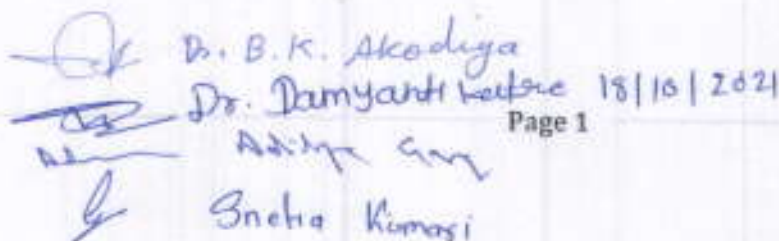 Dr. B. K. Akodiya
Dr. Damyanti 18/10/2021
Page 1
Aditya Garg
Sneha Kumari